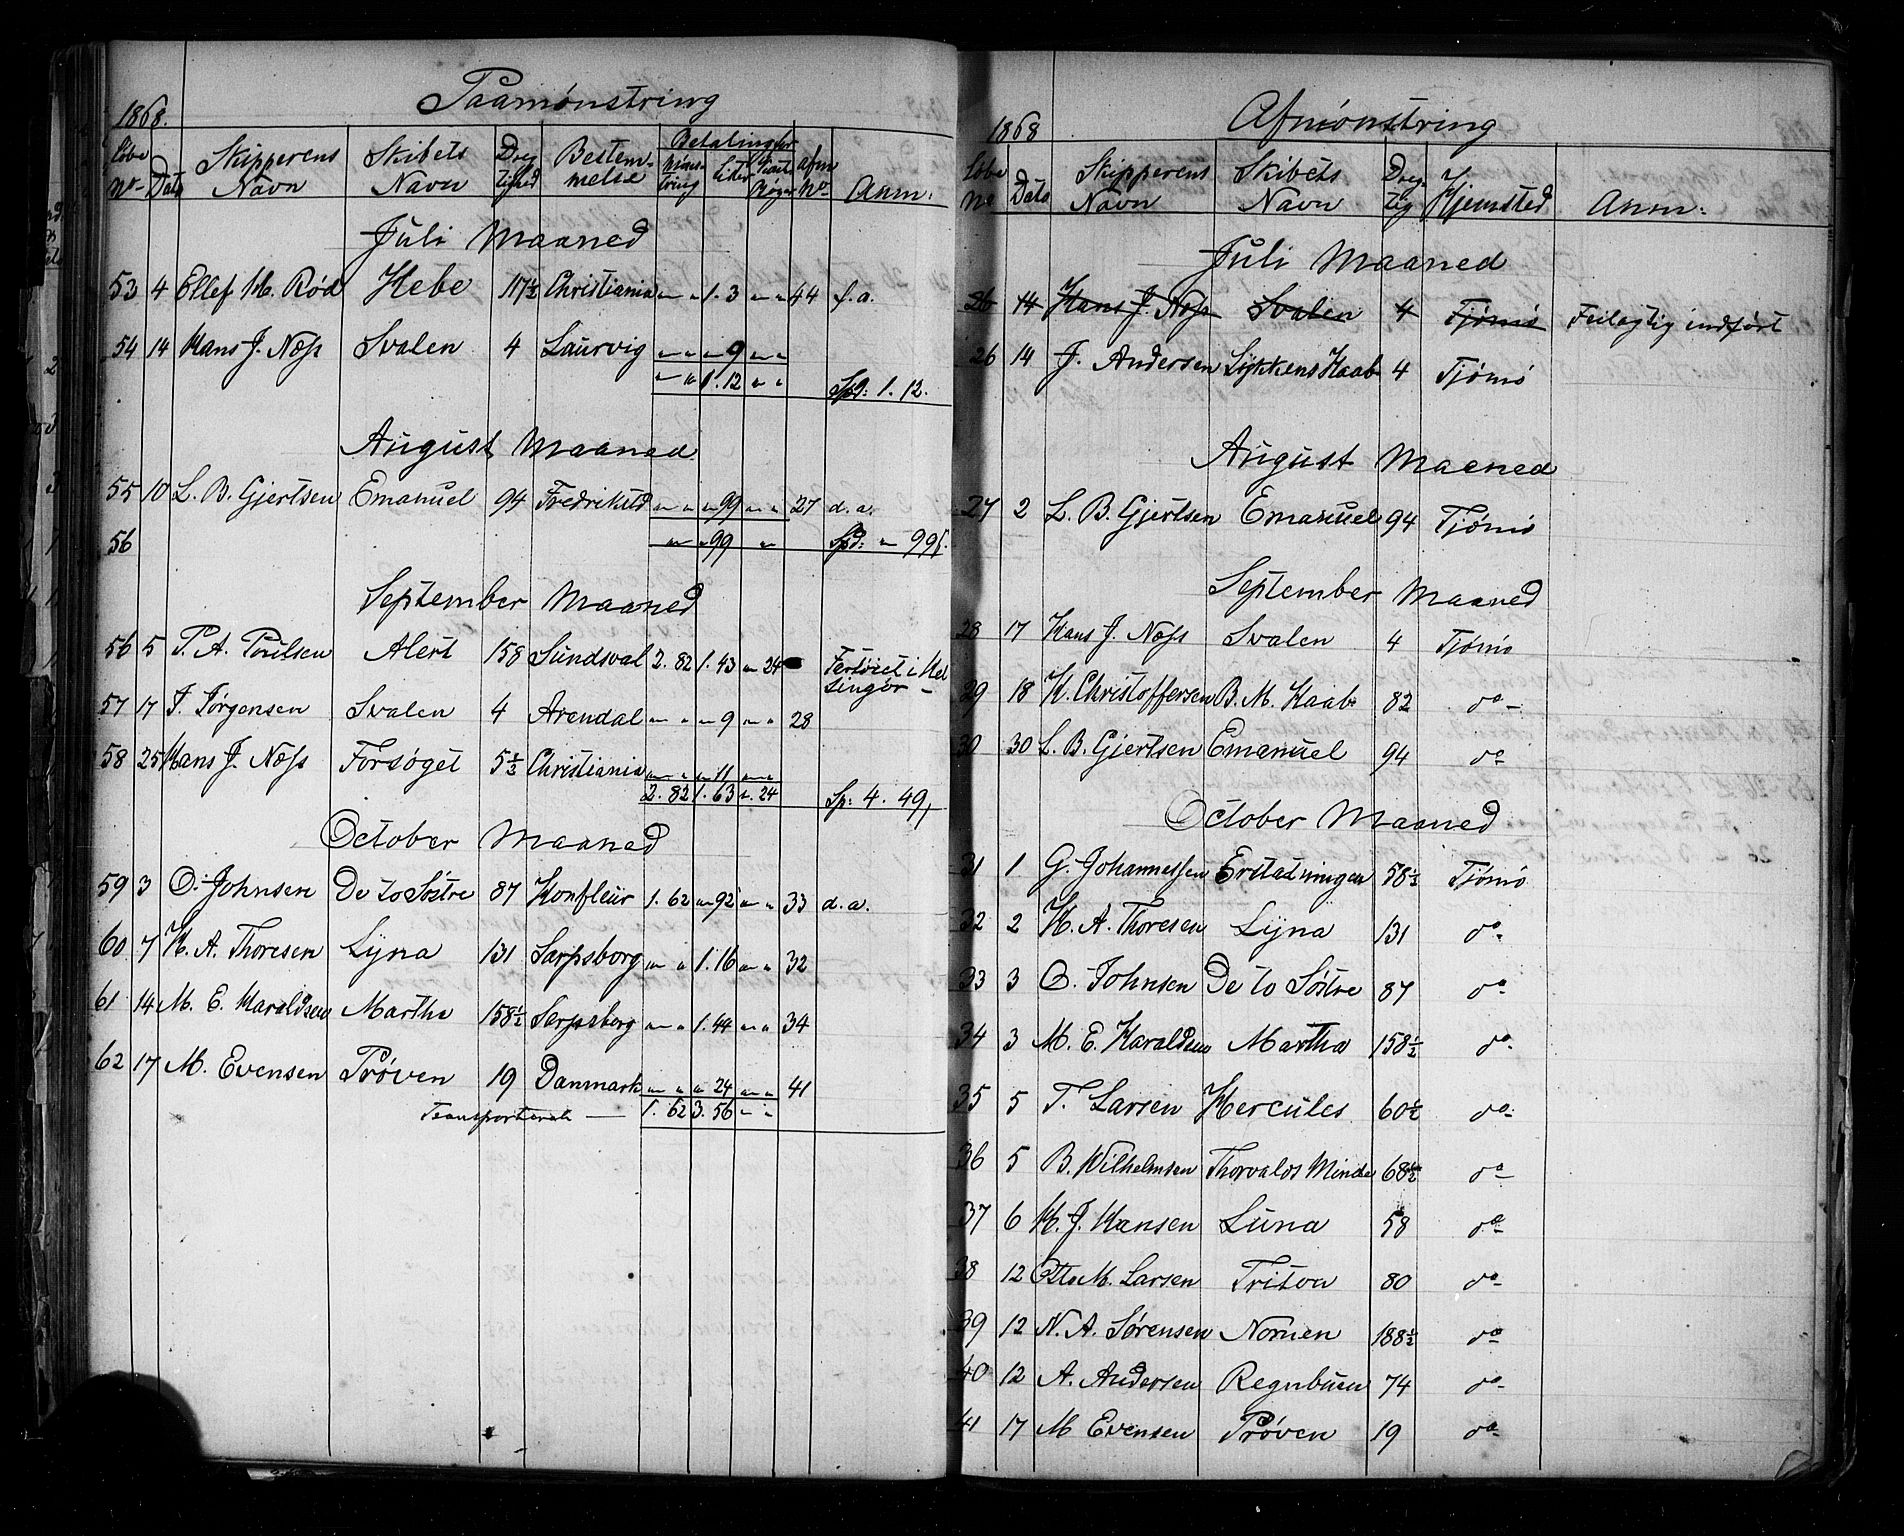 1868. Paamønstring
Løbe No. Dato Skipperens Navn Skibets Navn Dreg tighed Bestem- melse Betaling for Møns- tring Lister Afm No. Anm:
Juli Maaned
53 4 Ellef M. Rød Hebe 17½ Christiania " " 1. 3 " " 44 d. a.
54 14 Hans J. Næss Svalen 4 Laurvig " " " 9 " "
" " 1. 12 " " Spd: 1. 12.
August Maaned
55 10 L. B. Gjertsen Emanuel 94 Fredrikstd " " " 99 " " 27 d. a.
56 " " 99 " Spd: " 99
September Maaned
56 5 P. A. Poulsen Alert 158 Sundsval 2. 82 1. 43 " 24 Fartøiet i Hel singør -
57 17 J. Jørgensen Svalen 4 Arendal " " " 9 " " 28
58 25 Hans J. Næss Forsøget 5½ Christiania " " " 11 " "
2. 82 1. 63 " 24 Sp: 4. 49
October Maaned
59 3 O. Johnsen De to Søstre 87 Honfleur 1. 62 " 92 " " 33 d. a.
60 7 H. A. Thoresen Lyna 131 Sarpsborg " " 1. 16 " " 32
61 14 M. E. Haraldsen Martha 158½ Sarpsborg " " 1. 44 " " 34
62 17 M. Evensen Prøven 19 Danmark " " " 24 " " 41
Transporterede — 1. 62 3. 56 " "
1868 Afmønstring
Løbe No Dato Skipperens Navn Skibets Navn Dreg- tig Hjemsted Anm:
Juli Maaned
26 14 Hans J. Næss Svalen 4 Tjømø Feilagtig indført
26 14 J. Andersen Lykkens Haab 4 Tjømø
August Maaned
27 2 L. B. Gjertsen Emanuel 94 Tjømø
September Maaned
28 17 Hans J. Næss Svalen 4 Tjømø
29 18 H. Christoffersen B. M. Haab 82 do -
30 30 L. B. Gjertsen Emanuel 94 do
October Maaned
31 1 G. Johannessen Erstatningen 58½ Tjømø
32 2 H. A. Thoresen Lyna 131 do
33 3 O. Johnsen De to Søstre 87 do
34 3 M. E. Haraldsen Martha 158½ do
35 5 T. Larsen Hercules 60½ do
36 5 B. Wilhelmsen Thorvalds Minde 68½ do
37 6 H. J. Hansen Luna 58 do
38 12 Otto M. Larsen Triton 80 do
39 12 N. A. Sørensen Nornen 188½ do
40 12 A. Andersen Regnbuen 74 do
41 17 M Evensen Prøven 19 do